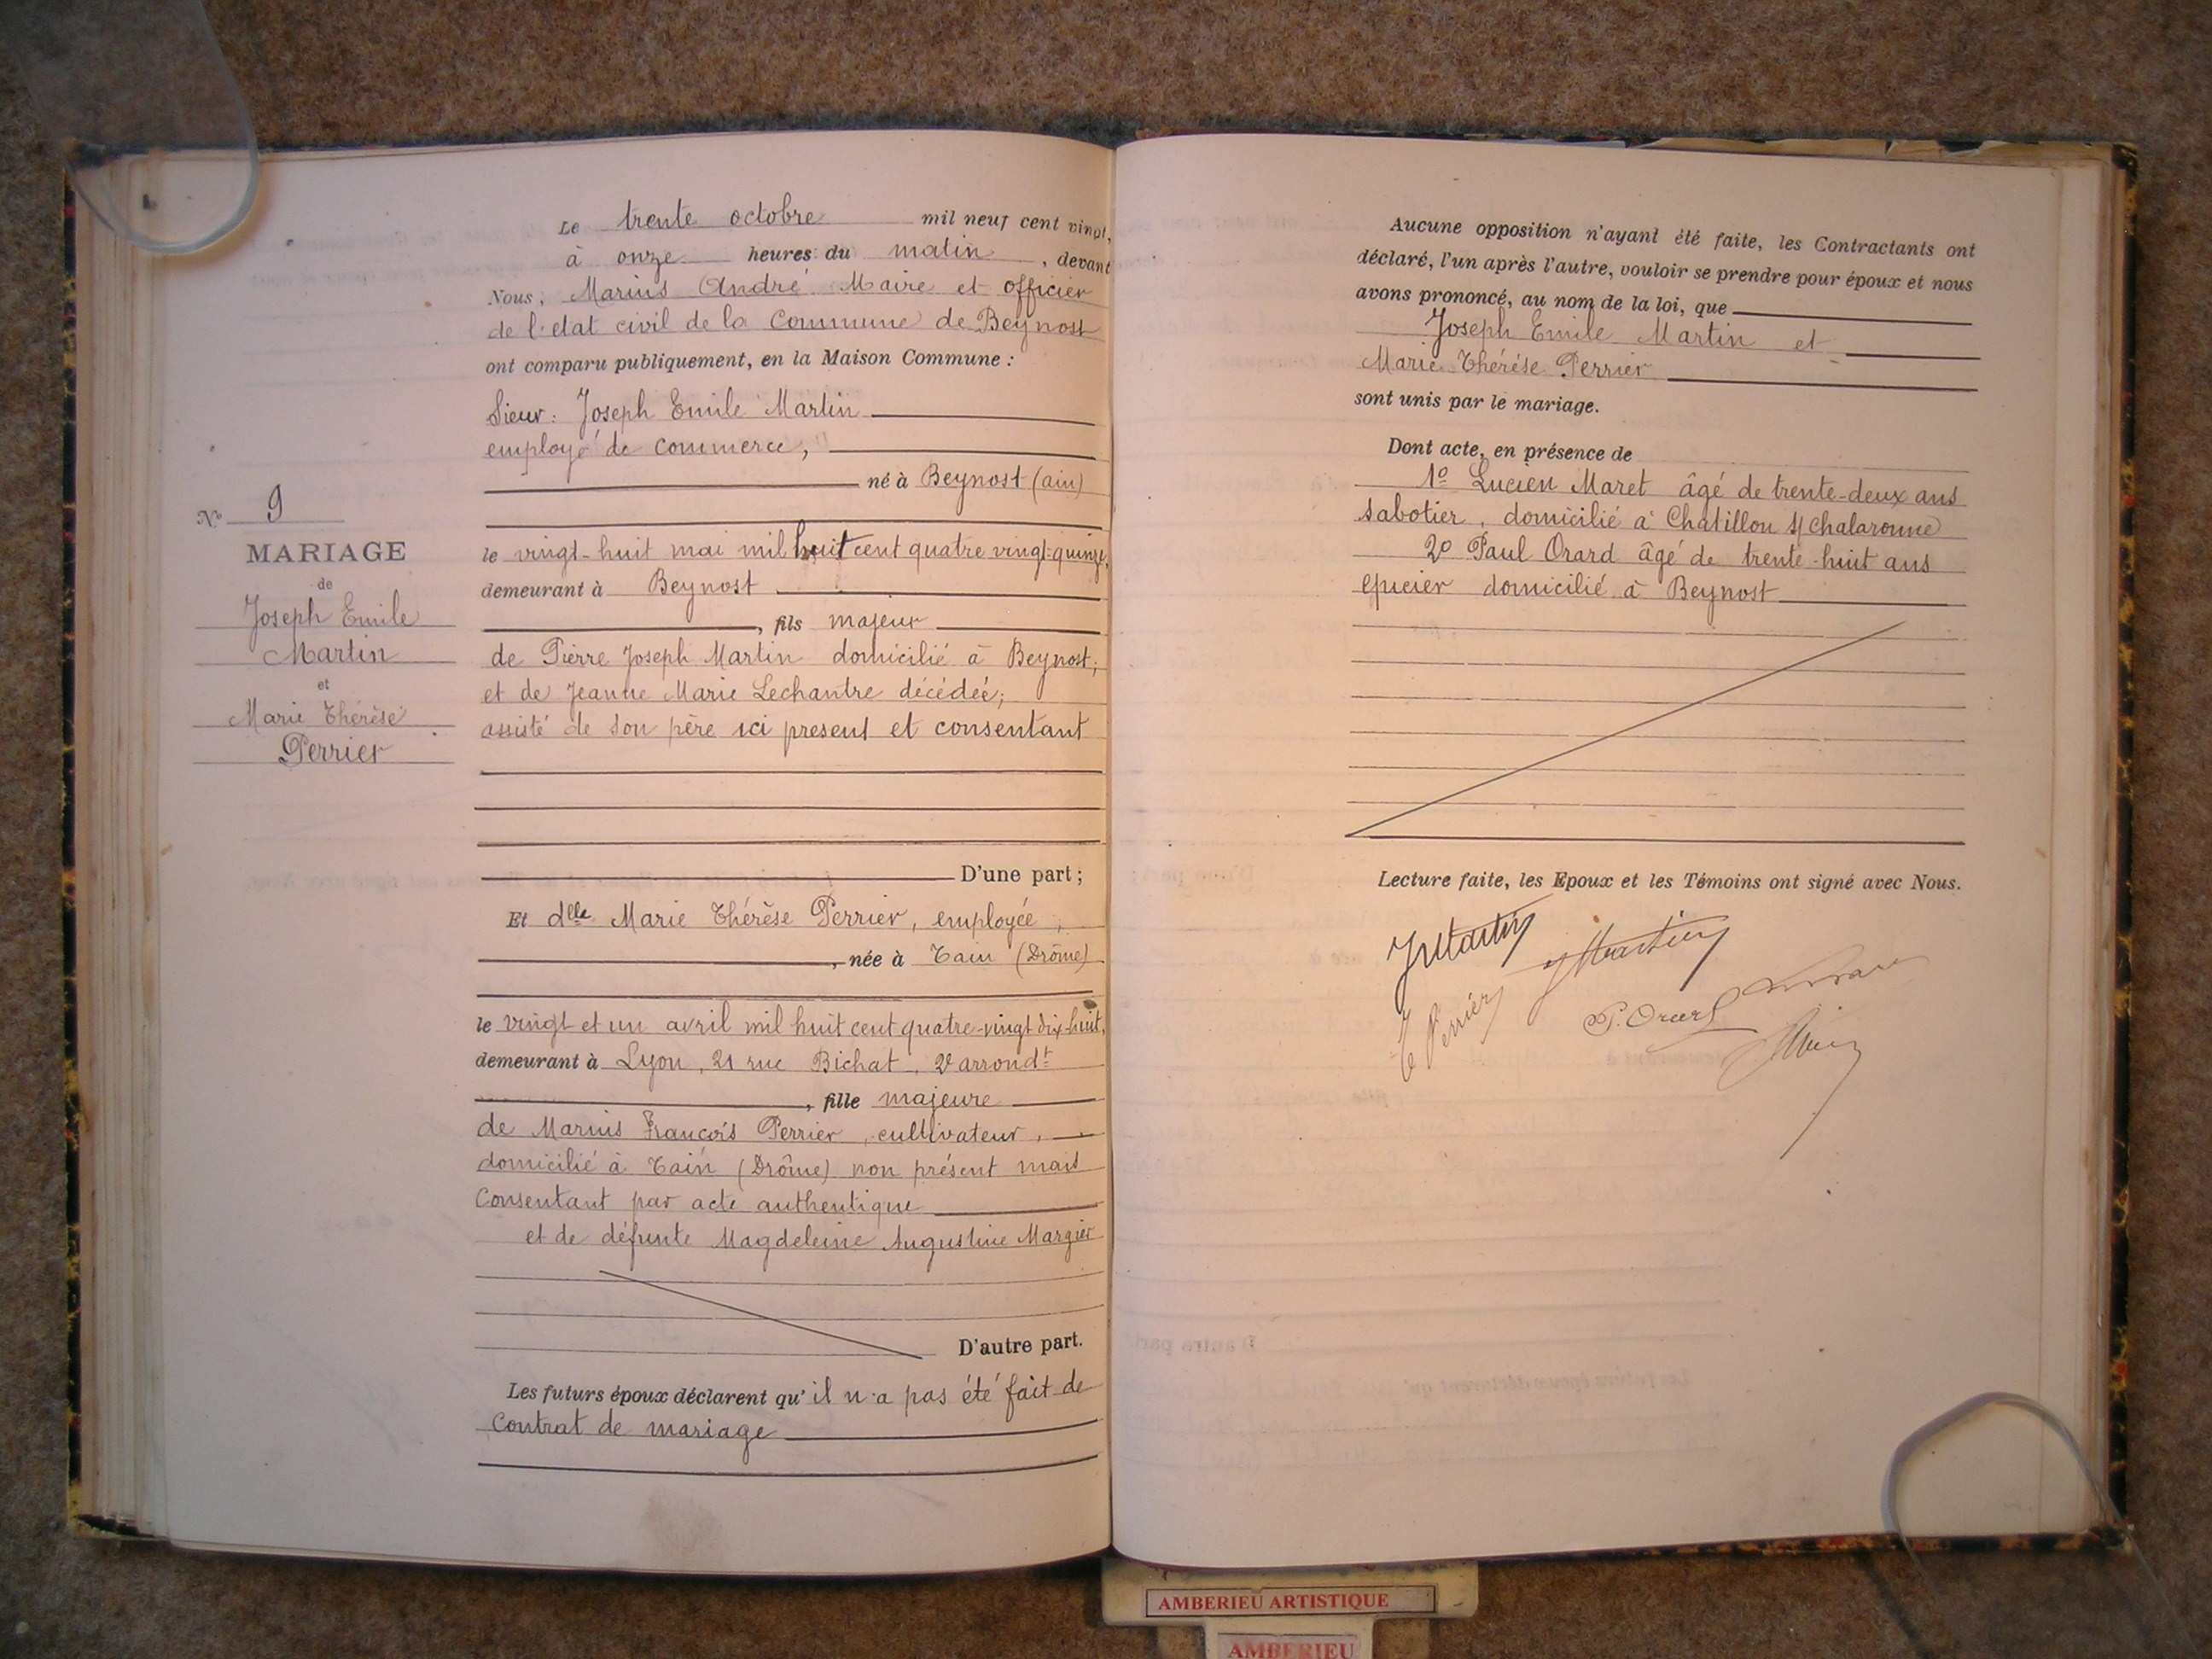 Le trente octobre mil neuf cent vingt,
à onze heures du matin, devant
Nous, Marius André Maire et officier
de l'etat civil de la Commune de Beynost
ont comparu publiquement, en la Maison Commune :
Sieur: Joseph Emile Martin
employé de commerce,
né à Beynost (ain)
le vingt-huit mai mil huit cent quatre vingt-quinze,
demeurant à Beynost
, fils majeur
de Pierre Joseph Martin domicilié à Beynost;
et de Jeanne Marie Lechantre décédée;
assisté de son père ici present et consentant
D'une part ;
Et dlle Marie Thérèse Perrier, employée,
, née à Tain (Drôme)
le vingt et un avril mil huit cent quatre-vingt dix-huit,
demeurant à Lyon, 21 rue Bichat, 2e arrondt
, fille majeure
de Marius François Perrier, cultivateur,
domicilié à Tain (Drôme) non présent mais
Consentant par acte authentique
et de défunte Magdeleine Augustine Margier
D'autre part.
Les futurs époux déclarent qu'il n'a pas été fait de
Contrat de mariage
N° 9
MARIAGE
de
Joseph Emile
Martin
et
Marie Thérèse
Perrier
Aucune opposition n'ayant été faite, les Contractants ont
déclaré, l'un après l'autre, vouloir se prendre pour époux et nous
avons prononcé, au nom de la loi, que
Joseph Emile Martin et
Marie Thérése Perrier
sont unis par le mariage.
Dont acte, en présence de
1° Lucien Maret âgé de trente-deux ans
sabotier, domicilié à Chatillon s/ chalaronne
2° Paul Orard âgé de trente-huit ans
epicier domicilié à Beynost
Lecture faite, les Epoux et les Témoins ont signé avec Nous.
JMartin
Martin
T Perrier
P. Orard
AMBERIEU ARTISTIQUE
AMBERIEU